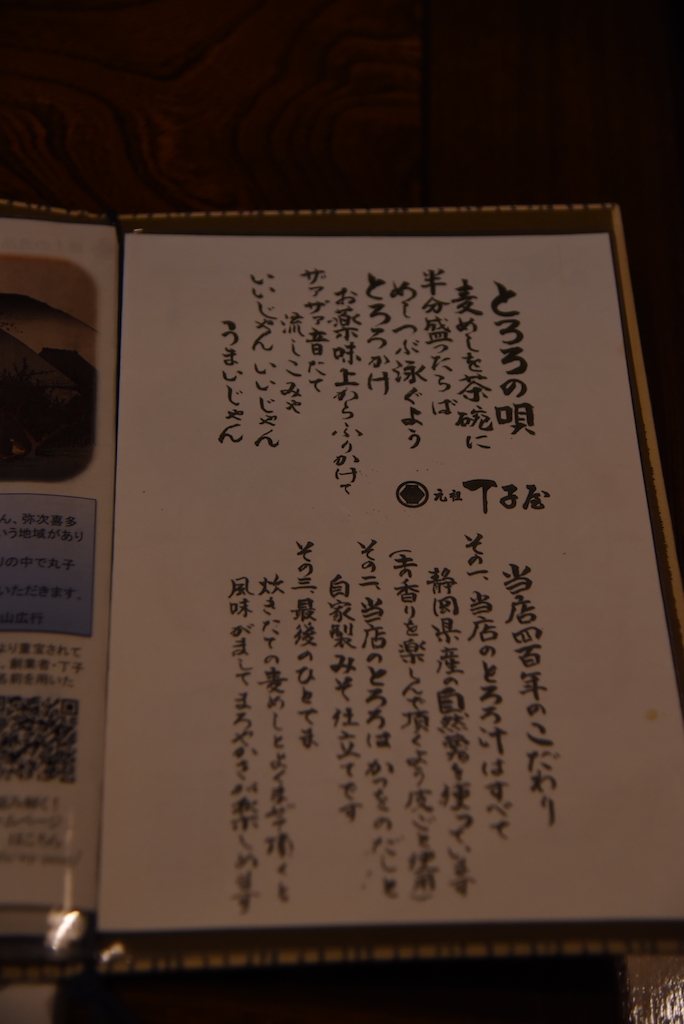 とろろの唄
麦めしを茶碗に
半分盛ったらば
めしつぶ泳ぐよう
とろろかけ
お薬味上からふりかけて
ザァザァ音たて
流しこみゃ
いいじゃん いいじゃん
うまいじゃん
元祖 丁子屋
当店四百年のこだわり
その一、当店のとろろ汁はすべて
静岡県産の自然薯を使っています
(土の香りを楽しんで頂くよう皮ごと使用)
その二、当店のとろろはかつをのだしと
自家製みそ仕立てです
その三、最後のひとてま
炊きたての麦めしとよくまぜて頂くと
風味がましてまろやかさが楽しめます
ん、弥次喜多
いう地域があり
りの中で丸子
いただきます。
山広行
より重宝されて
、創業者・丁子
名前を用いた
ムページ
はこちら